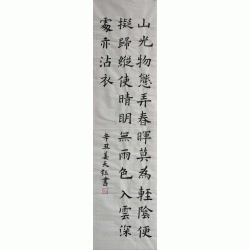 山光物態弄春暉莫為輕陰便
擬歸縱使晴明無雨色入雲深
處亦沾衣
辛丑姜天鈺書